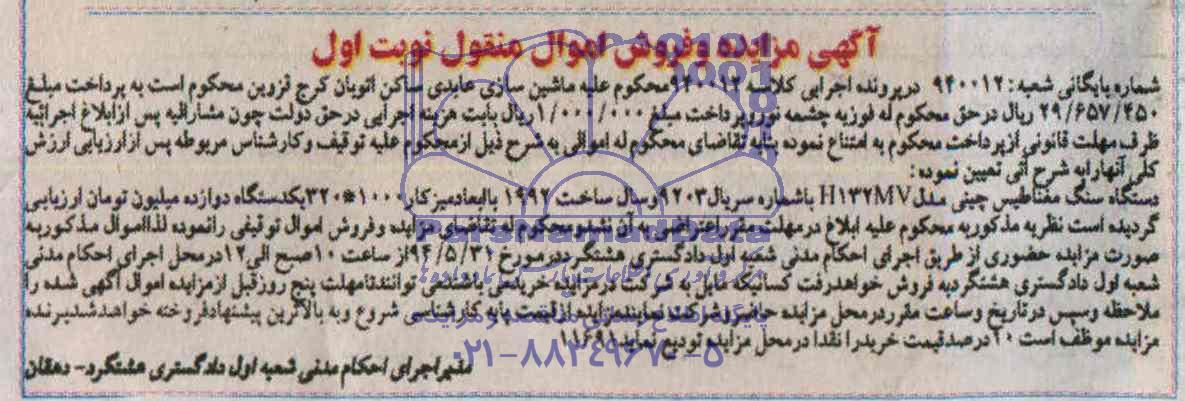 آگهی مزایده وفروش اموال منقول نوبت اول
شماره بایگانی شعبه: ۹۴۰۰۱۲ درپرونده اجرایی کلاسه ۹۴۰۰۱۲ محکوم علیه ماشین سازی عابدی ساکن اتوبان کرج قزوین محکوم است به پرداخت مبلغ
۲۹/۶۵۷/۴۵۰ ریال درحق محکوم له فوزیه چشمه نور وپرداخت مبلغ ۱/۰۰۰/۰۰۰ریال بابت هزینه اجرایی درحق دولت چون مشارالیه پس ازابلاغ اجرائیه
ظرف مهلت قانونی ازپرداخت محکوم به امتناع نموده بنابه تقاضای محکوم له اموالی به شرح ذیل ازمحکوم علیه توقیف وکارشناس مربوطه پس ازارزیابی ارزش
کلی آنهارابه شرح آتی تعیین نموده:
دستگاه سنگ مغناطیس چینی مدل H۱۳۲MV باشماره سریال۹۲۰۳ وسال ساخت ۱۹۹۲ باابعادمیزکار۱۰۰۰*۳۲۰یکدستگاه دوازده میلیون تومان ارزیابی
گردیده است نظریه مذکوربه محکوم علیه ابلاغ درمهلت مقرراعتراضی به آن نشدومحکوم له تقاضای مزایده وفروش اموال توقیفی رانموده لذااموال مذکوربه
صورت مزایده حضوری از طریق اجرای احکام مدنی شعبه اول دادگستری هشتگرددرمورخ ۹۴/۵/۳۱از ساعت ۱۰صبح الی۱۲درمحل اجرای احکام مدنی
شعبه اول دادگستری هشتگردبه فروش خواهدرفت کسانیکه مایل به شرکت درمزایده خریدمی باشندمی توانندتامهلت پنج روزقبل ازمزایده اموال آگهی شده را
ملاحظه وسپس درتاریخ وساعت مقرردرمحل مزایده حاضروشرکت نمایندمزایده ازقیمت پایه کارشناسی شروع وبه بالاترین پیشنهادفروخته خواهدشدبرنده
مزایده موظف است ۱۰درصدقیمت خریدرا نقدا درمحل مزایده تودیع نماید
مدیراجرای احکام مدنی شعبه اول دادگستری هشتگرد- دهقان
ParsNamadData
۰۲۱-۸۸۳۴۹۶۷۰-۵